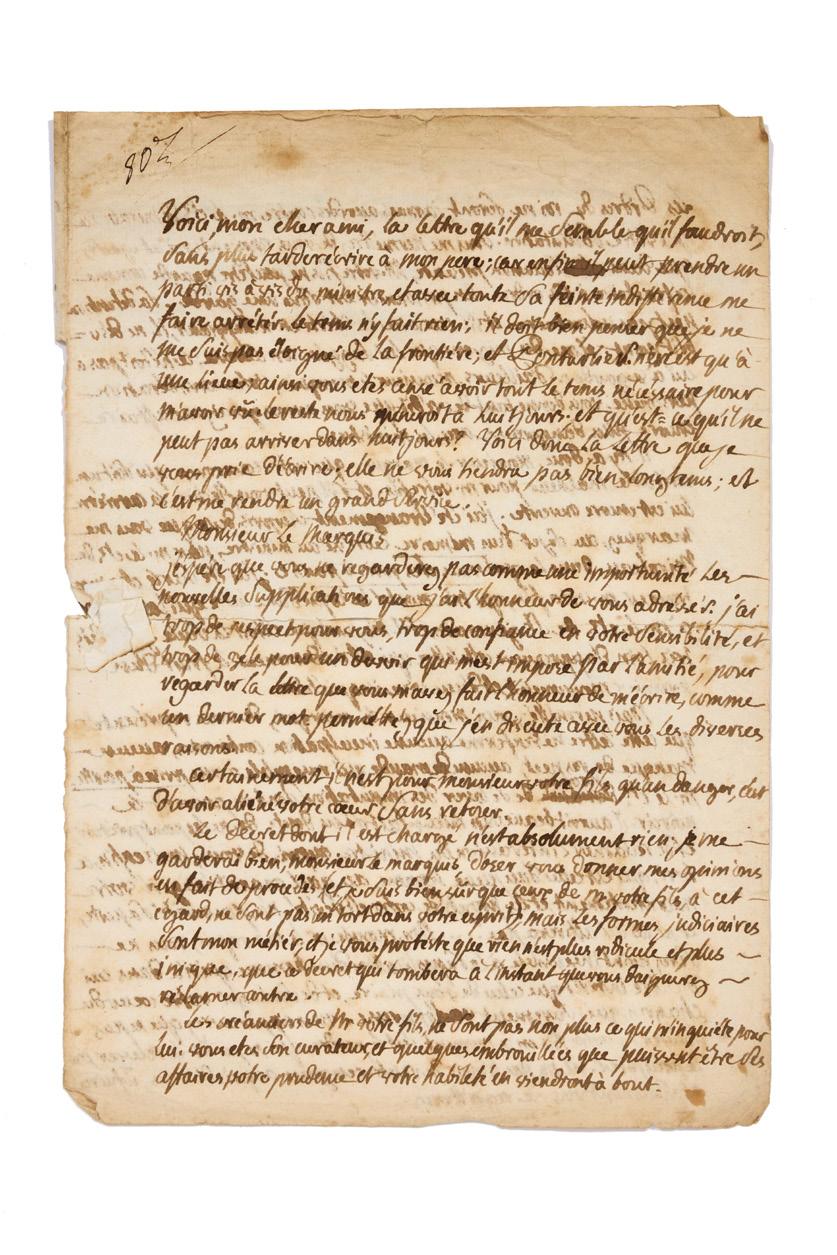 80
Voici, mon cher ami, la lettre qu'il me semble qu'il faudroit,
sans plus tarder écrire à mon pere; car enfin il peut prendre un
parti vis à vis du ministre, et avec toute sa feinte indifférence me
faire arrêter. le tems n'y fait rien; il doit bien penser que je ne
me suis pas éloigné de la frontière; et Pontarlier n'en est qu'à
une lieue; ainsi vous etes censé avoir tout le tems nécessaire pour
m'avoir vû. le reste nous à huit jours; et qu'est-ce qu'il ne
peut pas arriver dans huit jours? Voici donc la lettre que je
vous prie d'écrire; elle ne vous tiendra pas bien longtems; et
c'est me rendre un grand service.
Monsieur le Marquis
j'espère que vous ne regarderez pas comme une importunité les
nouvelles supplications que j'ai l'honneur de vous adresser. j'ai
trop de respect pour vous, trop de confiance en votre sensibilité, et
trop de zèle pour un devoir qui m'est imposé par l'amitié, pour
regarder la lettre que vous m'avez fait l'honneur de m'écrire, comme
un dernier mot. permettez que j'en discute avec vous les diverses
raisons.
certainement il n'est pour monsieur votre fils qu'un danger, c'est
d'avoir aliéné votre cœur sans retour.
Le decret dont il est chargé n'est absolument rien; je me
garderai bien, monsieur le marquis d'oser vous donner mes opinions
en fait de procédés, et je suis bien sûr que ceux de m. votre fils à cet
égard, ne sont pas un tort dans votre esprit; mais les formes judiciaires
sont mon métier, et je vous proteste que rien n'est plus ridicule et plus
inique, que ce decret qui tombera à l'instant que vous daignerez
réclamer contre.
Les créanciers de Mr votre fils, ne sont pas non plus ce qui m'inquiète pour
lui. vous etes son curateur, et quelques embrouillées que puissent être ses
affaires votre prudence et votre habileté en viendront à bout.